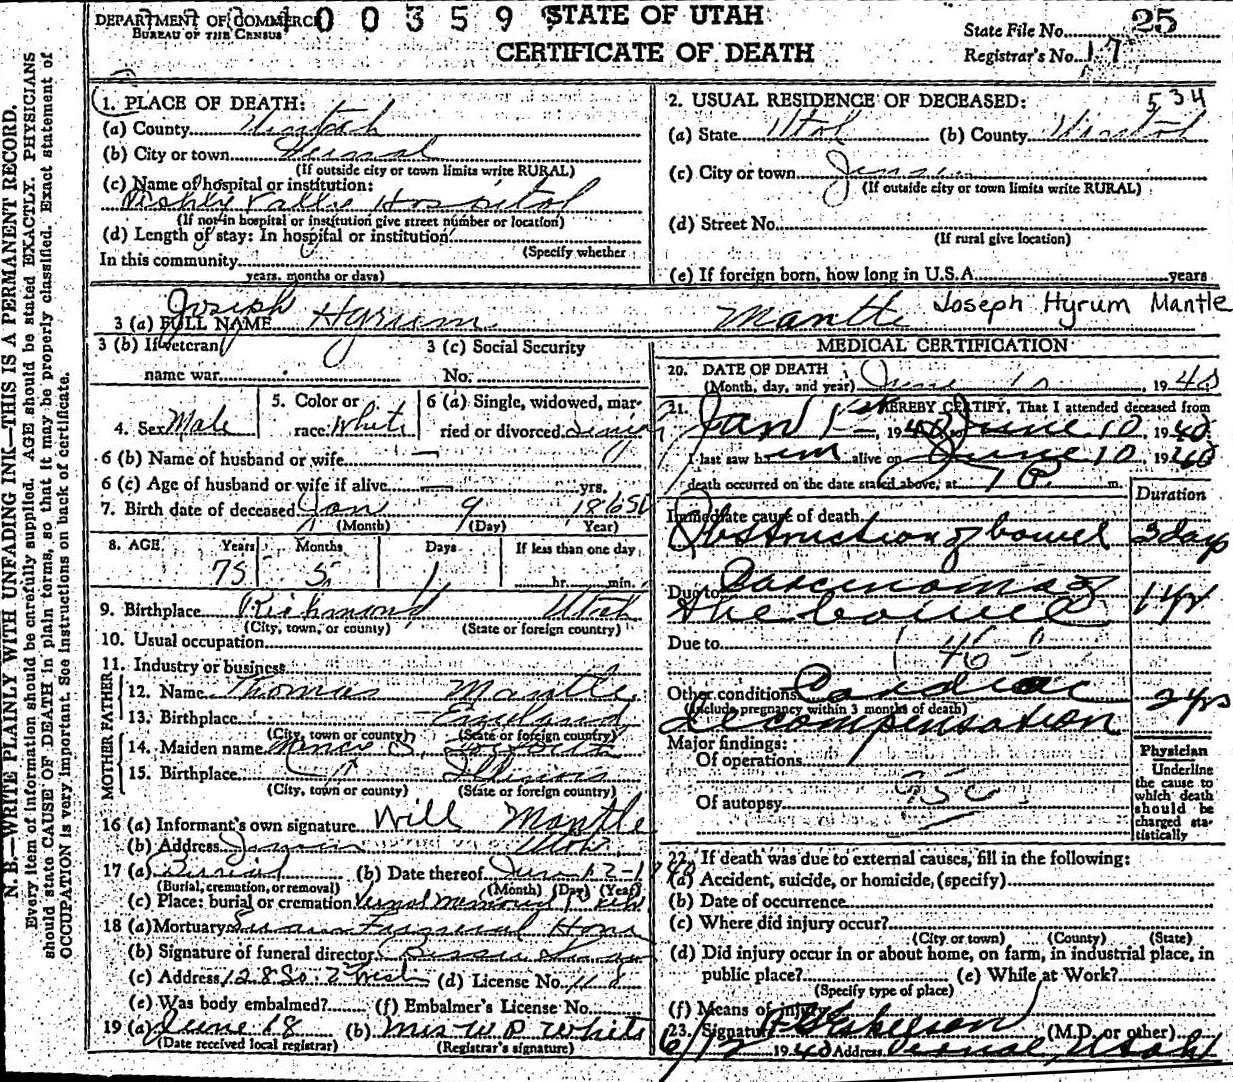 DEPARTMENT OF COMMERCE 1 0 0 3 5 9 STATE OF UTAH
BUREAU OF THE CENSUS
CERTIFICATE OF DEATH
State File No. 25
Registrar's No. 17
N. B.—WRITE PLAINLY WITH UNFADING INK—THIS IS A PERMANENT RECORD.
Every item of information should be carefully supplied. AGE should be stated EXACTLY. PHYSICIANS
should state CAUSE OF DEATH in plain terms, so that it may be properly classified. Exact statement of
OCCUPATION is very important. See instructions on back of certificate.
1. PLACE OF DEATH:
(a) County Uintah
(b) City or town Vernal
(If outside city or town limits write RURAL)
(c) Name of hospital or institution:
Hospital
(If not in hospital or institution give street number or location)
(d) Length of stay: In hospital or institution
(Specify whether
In this community
years, months or days)
2. USUAL RESIDENCE OF DECEASED: 534
(a) State Utah (b) County Uintah
(c) City or town Jensen
(If outside city or town limits write RURAL)
(d) Street No.
(If rural give location)
(e) If foreign born, how long in U.S.A. years
3 (a) FULL NAME Joseph Hyrum Mantle Joseph Hyrum Mantle
3 (b) If veteran 3 (c) Social Security
name war No.
4. Sex Male 5. Color or race White 6 (a) Single, widowed, married or divorced Single
6 (b) Name of husband or wife —
6 (c) Age of husband or wife if alive — yrs.
7. Birth date of deceased Jan 9 1865
(Month) (Day) Year)
8. AGE Years Months Days If less than one day
75 5 1 hr. min.
9. Birthplace Richmond Utah
(City, town, or county) (State or foreign country)
10. Usual occupation
11. Industry or business
FATHER
12. Name Thomas Mantle
13. Birthplace England
(City, town or county) (State or foreign country)
MOTHER
14. Maiden name
15. Birthplace Illinois
(City, town or county) (State or foreign country)
16 (a) Informant's own signature Will Mantle
(b) Address Jensen Utah
17 (a) Burial (b) Date thereof June 12-1940
(Burial, cremation, or removal) (Month) (Day) (Year)
(c) Place: burial or cremation Vernal Memorial Park
18 (a) Mortuary Funeral Home
(b) Signature of funeral director
(c) Address 128 So. 2 West (d) License No. 118
(e) Was body embalmed? (f) Embalmer's License No.
19 (a) June 18 (b) Mrs W P White
(Date received local registrar) (Registrar's signature)
MEDICAL CERTIFICATION
20. DATE OF DEATH
(Month, day, and year) June 10, 1940
21. I HEREBY CERTIFY, That I attended deceased from
Jan 1st, 1940 to June 10, 1940
I last saw him alive on June 10, 1940
death occurred on the date stated above, at 7 P. m.
Duration
Immediate cause of death
Obstruction of bowel 3 days
Due to Carcinoma of
the bowel 1 yr
Due to
46
Other conditions Cardiac
(Include pregnancy within 3 months of death)
decompensation 2 yrs
Major findings:
Of operations
Of autopsy
Physician
Underline
the cause to
which death
should be
charged sta-
tistically
22. If death was due to external causes, fill in the following:
(a) Accident, suicide, or homicide, (specify)
(b) Date of occurrence
(c) Where did injury occur?
(City or town) (County) (State)
(d) Did injury occur in or about home, on farm, in industrial place, in
public place? (e) While at Work?
(Specify type of place)
(f) Means of injury
23. Signature (M.D. or other)
6/12 1940 Address Vernal, Utah